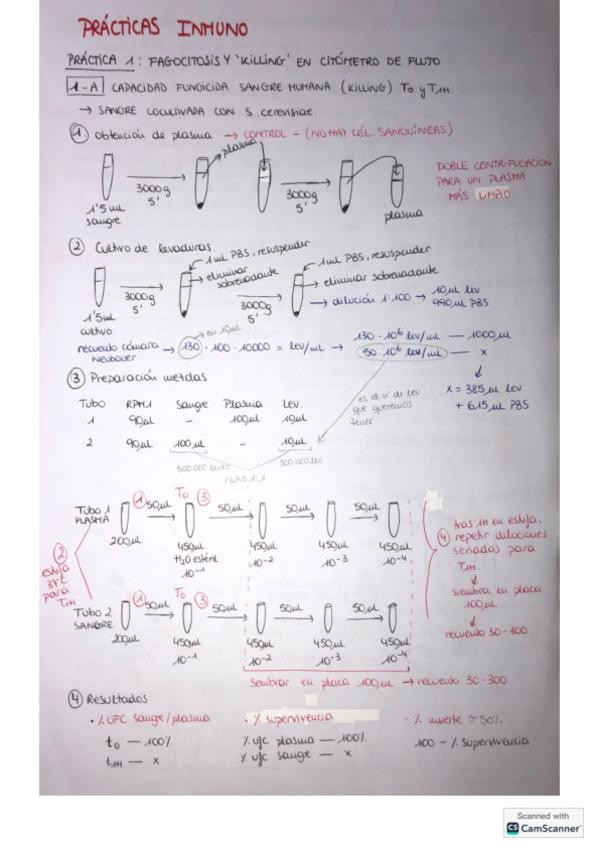 PRÁCTICAS INMUNO
PRÁCTICA 1: FAGOCITOSIS Y 'KILLING' EN CITÓMETRO DE FLUJO
1-A CAPACIDAD FUNGICIDA SANGRE HUMANA (KILLING) T0 y T1H.
→ SANGRE COCULTIVADA CON S. cerevisiae
① Obtención de plasma → CONTROL - (NO HAY CÉL. SANGUÍNEAS)
plasma
3000g
5'
3000g
5'
1'5 ml
sangre
plasma
DOBLE CENTRIFUGACIÓN
PARA UN PLASMA
MÁS LIMPIO.
② Cultivo de levaduras
1 mL PBS, resuspender
eliminar sobrenadante
1 mL PBS, resuspender
eliminar sobrenadante
3000g
5'
3000g
5'
→ dilución 1:100 → 10 µL lev
990 µL PBS
1'5 ml
cultivo
en 10 µl
recuento cámara
Neubauer → 130 · 100 · 10000 = lev/mL → 130 · 10⁶ lev/mL — 1000 µl
50 · 10⁶ lev/mL — x
x = 385 µL lev
+ 615 µL PBS
③ Preparación mezclas
es el nº de lev
que queremos
tener
Tubo RPMI Sangre Plasma Lev.
1 90 µL - 100 µL 10 µL
2 90 µL 100 µL - 10 µL
500.000 leuco 500.000 lev
ratio 1:1
Tubo 1
PLASMA
① 50 µL T0 ③ 50 µL 50 µL 50 µL
200 µL
450 µL 450 µL 450 µL 450 µL
H2O estéril
10⁻¹ 10⁻² 10⁻³ 10⁻⁴
②
estufa
37ºC
para
T1H
Tubo 2
SANGRE
① 50 µL T0 ③ 50 µL 50 µL 50 µL
200 µL
450 µL 450 µL 450 µL 450 µL
10⁻¹ 10⁻² 10⁻³ 10⁻⁴
Sembrar en placa 100 µL → recuento 30-300
④ tras 1H en estufa,
repetir diluciones
seriadas para
T1H.
siembra en placa
100 µL
recuento 30-300.
④ Resultados
· % UFC sangre/plasma
t0 — 100%
t1H — x
· % supervivencia
% ufc plasma — 100%
% ufc sangre — x
· % muerte ≃ 50%.
100 - % supervivencia
Scanned with
CS CamScanner